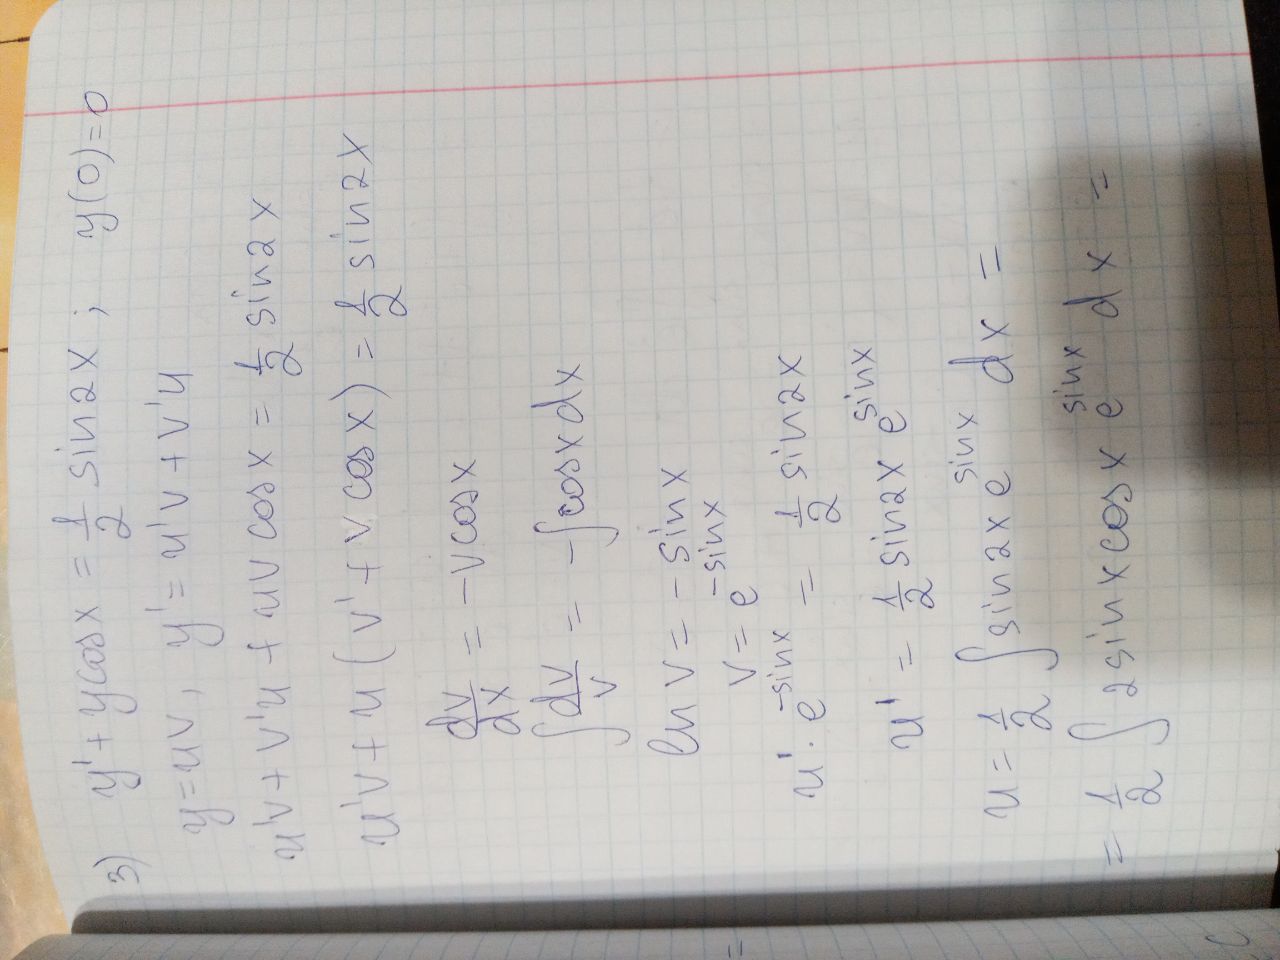 3) y' + y cos x = 1/2 sin 2x ; y(0) = 0
y = uv, y' = u'v + v'u
u'v + v'u + uv cos x = 1/2 sin 2x
u'v + u (v' + v cos x) = 1/2 sin 2x
dv/dx = -v cos x
∫ dv/v = -∫ cos x dx
ln v = - sin x
v = e^(-sin x)
u' · e^(-sin x) = 1/2 sin 2x
u' = 1/2 sin 2x e^(sin x)
u = 1/2 ∫ sin 2x e^(sin x) dx =
= 1/2 ∫ 2 sin x cos x e^(sin x) dx =
=
C